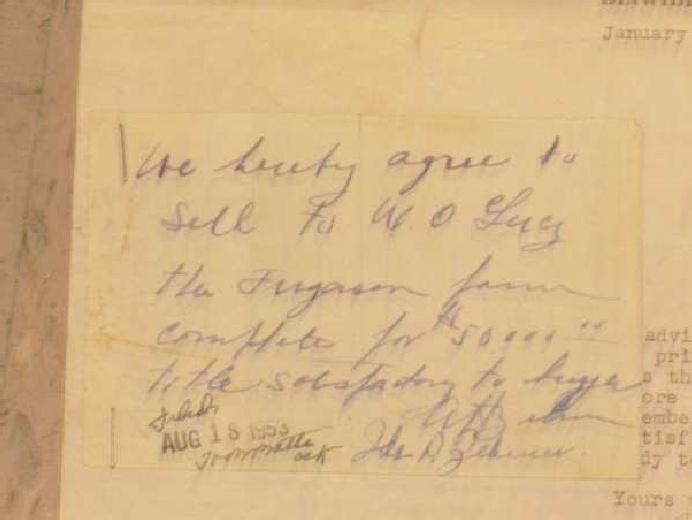 January
We hereby agree to
sell to W O Lucy
the Ferguson farm
complete for $50000 00
title satisfactory to buyer
AH Zehmer
Ida S. Zehmer
AUG 18 1953
advi
pri
s th
ore
embe
tisf
dy t
Yours